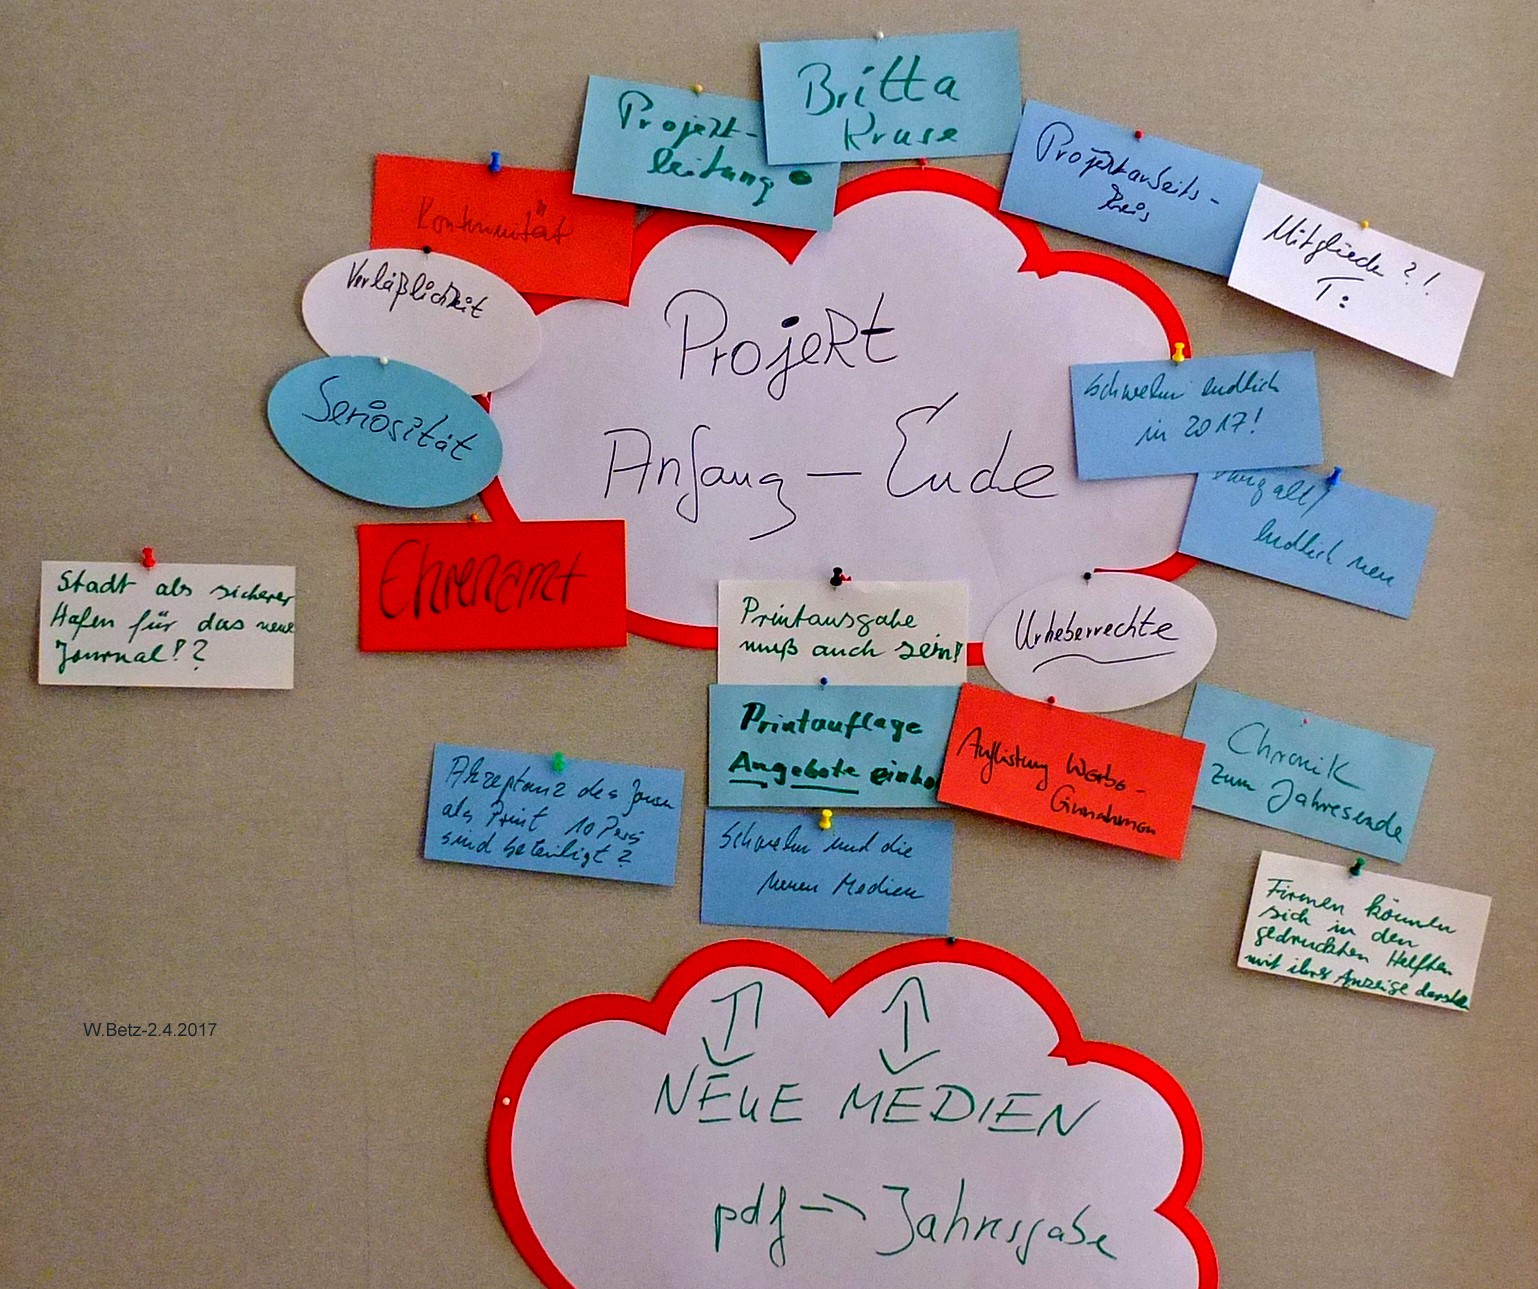 Britta
Kruse
Projekt-
leitung
Projektarbeits-
kreis
Mitglieder ?!
T:
Kontinuität
Verläßlichkeit
Seriosität
Projekt
Anfang – Ende
Schwelm endlich
in 2017!
endlich neu
Ehrenamt
Stadt als sicherer
Hafen für das neue
Journal!?
Printausgabe
muß auch sein!
Urheberrechte
Printauflage
Angebote einho
Auflistung Werbe-
Einnahmen
Chronik
zum Jahresende
Akzeptanz des Journ
als Print 10 Pers
sind beteiligt?
Schwelm und die
neuen Medien
Firmen können
sich in den
gedruckten Helften
mit ihrer Anzeige
W.Betz-2.4.2017
NEUE MEDIEN
pdf → Jahresgabe